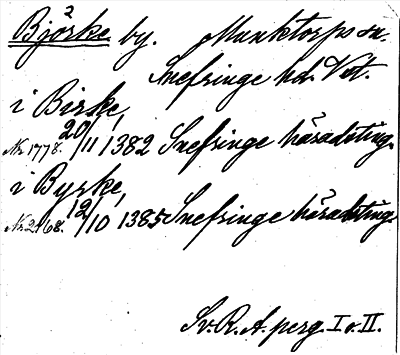 Björke by. Munktorps sn.
Snefringe hd. Vstl.
i Birke,
Nr 1778. 20/11 1382 Snefringe häradsting.
i Byrke,
Nr 2168. 12/10 1385 Snefringe häradsting.
Sv. R. A. perg. I o. II.